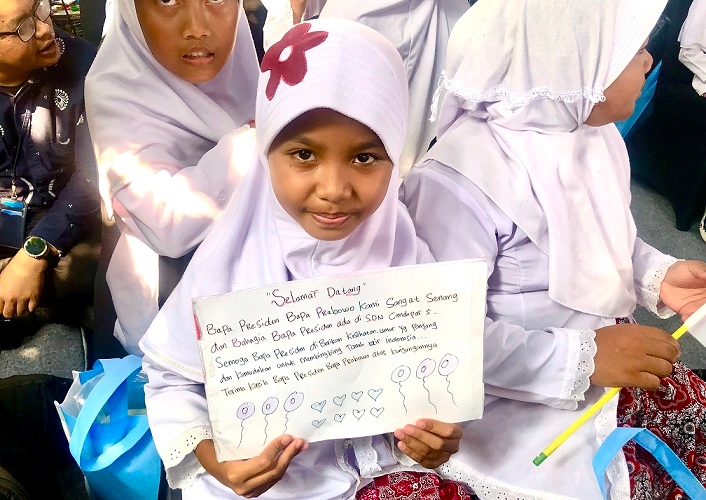 "Selamat Datang"
Bapa Presiden Bapa Prabowo Kami Sangat Senang
dan Bahagia Bapa Presiden ada di SDN Cimahpar 5...
Semoga Bapa Presiden di Berikan kesihatan. umur yg panjang
dan kemudahan untuk membimbing tanah air Indonesia...
Terima Kasih Bapa Presiden Bapa Prabowo atas kunjungannya